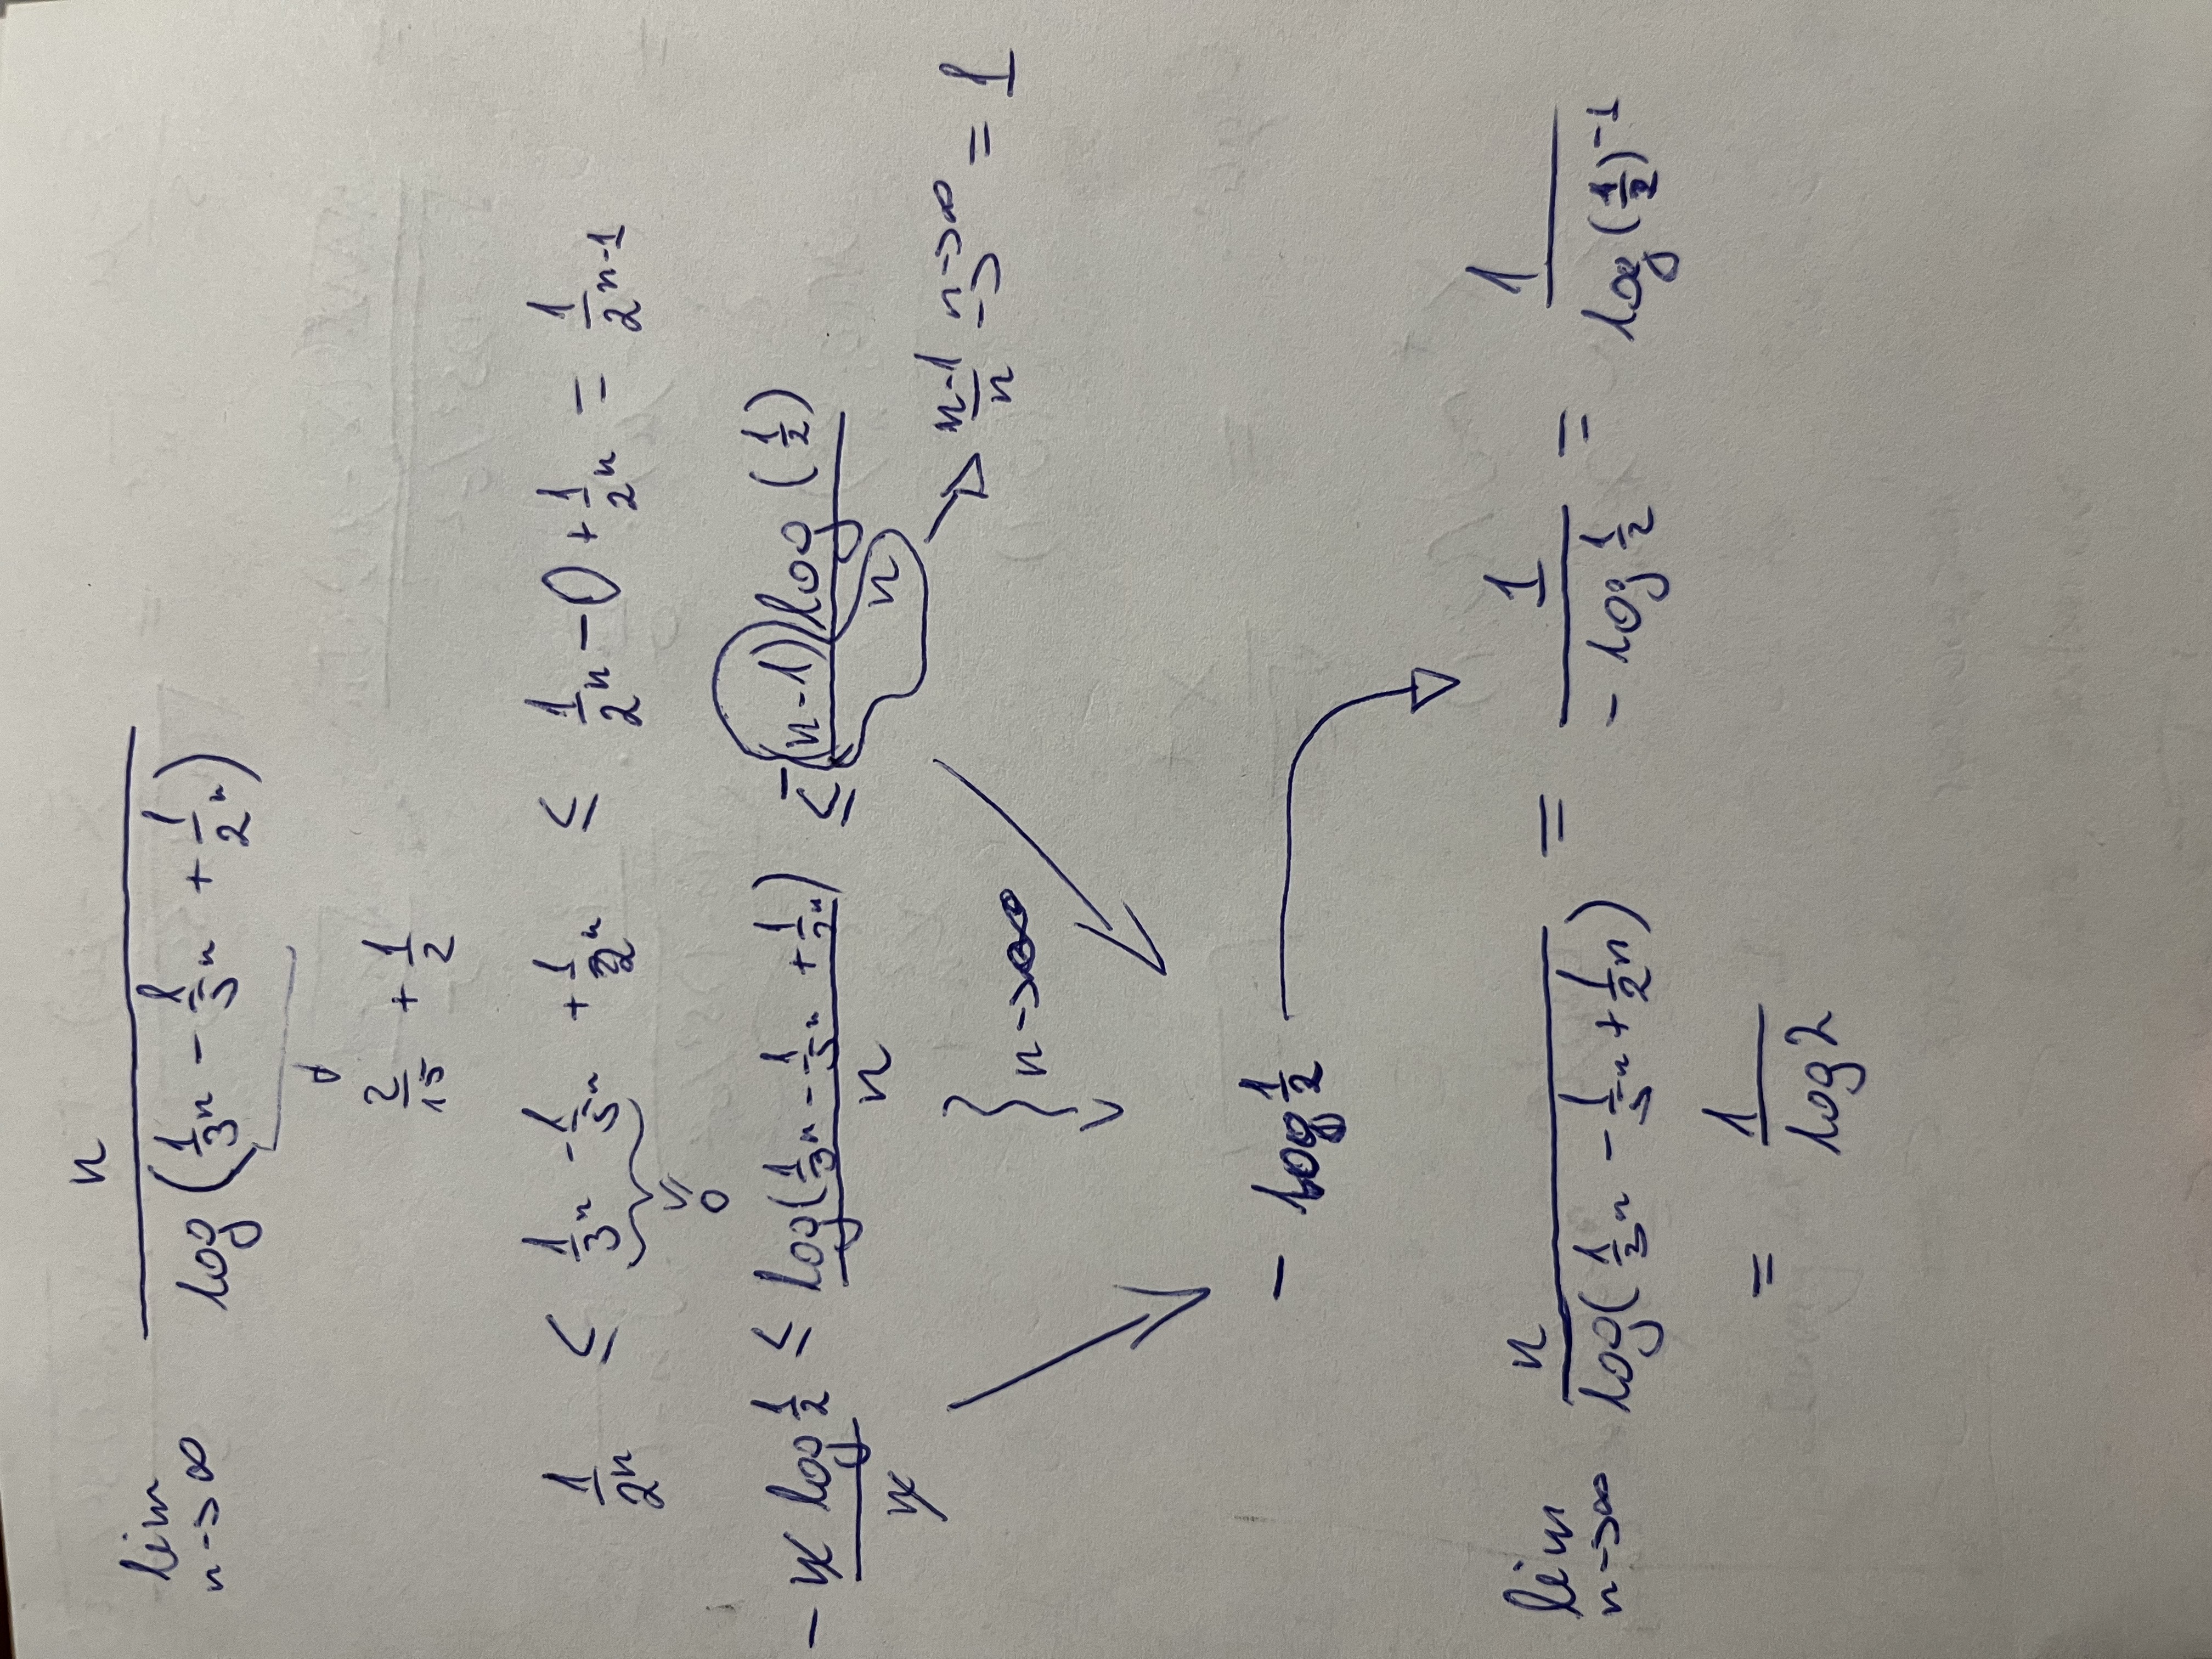 lim n→∞ n / log(1/3^n - 1/5^n + 1/2^n)
2/15 + 1/2
1/2^n ≤ 1/3^n - 1/5^n + 1/2^n ≤ 1/2^n - 0 + 1/2^n = 1/2^(n-1)
≥ 0
-n log 1/2 / n ≤ log(1/3^n - 1/5^n + 1/2^n) / n ≤ -(n-1) log(1/2) / n
n→∞ → (n-1)/n n→∞ → = 1
- log 1/2
lim n→∞ n / log(1/3^n - 1/5^n + 1/2^n) = 1 / -log 1/2 = 1 / log(1/2)^-1
= 1 / log 2